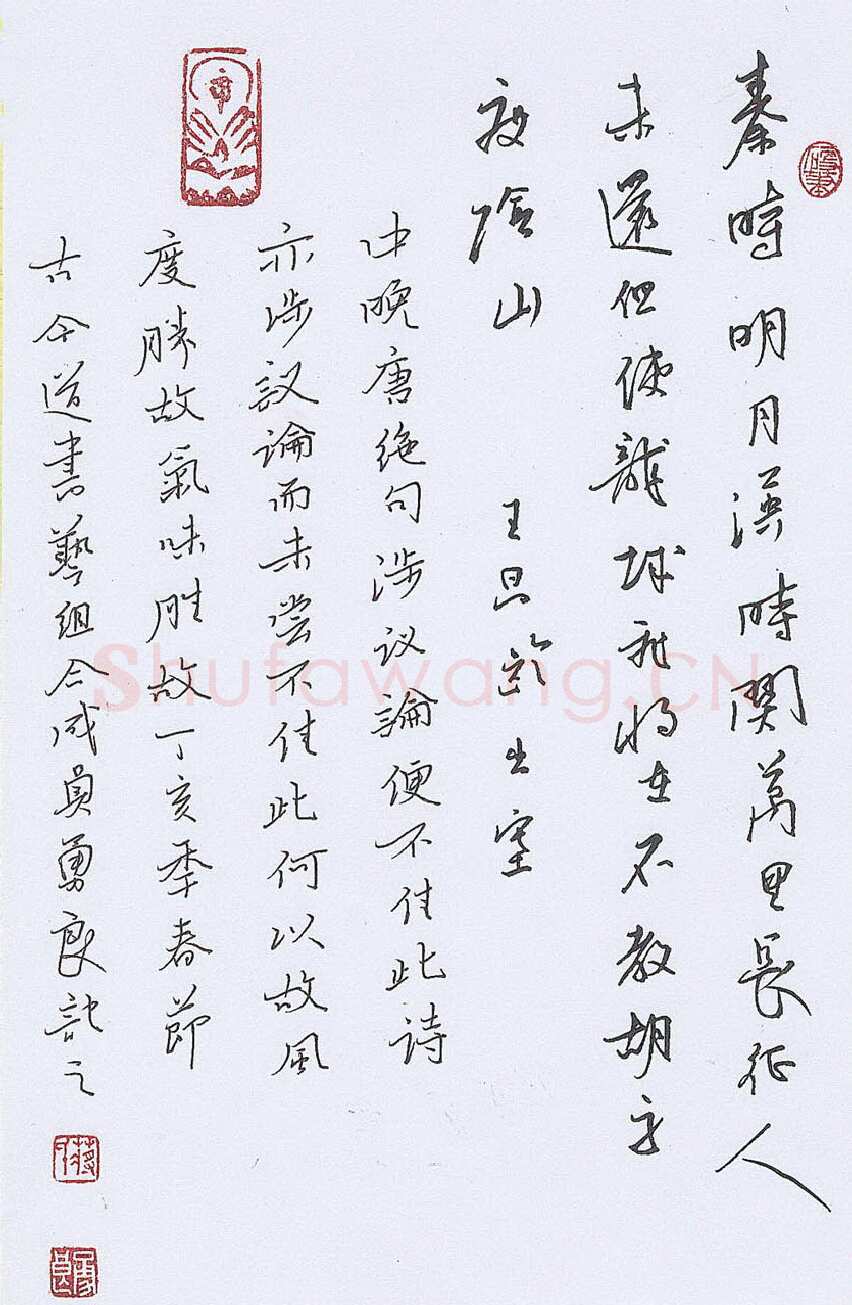 秦時明月漢時關萬里長征人
未還但使龍城飛將在不教胡馬
度陰山 王昌齡出塞
中晚唐絕句涉议論便不佳此詩
亦涉議論而未嘗不佳此何以故風
度勝故氣味胜故丁亥季春節
古今道書藝組合成員勇良記之
Shufawang.CN